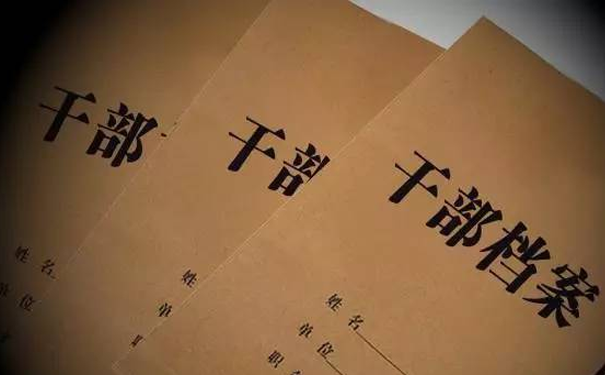 干部
姓名
单位
干部
姓
单
干部档案
姓名
单位
职